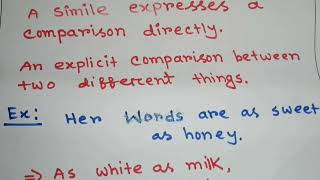 A simile expresses a
comparison directly.
An explicit comparison between
two different things.
Ex: Her Words are as sweet
as honey.
⇒ As white as milk,